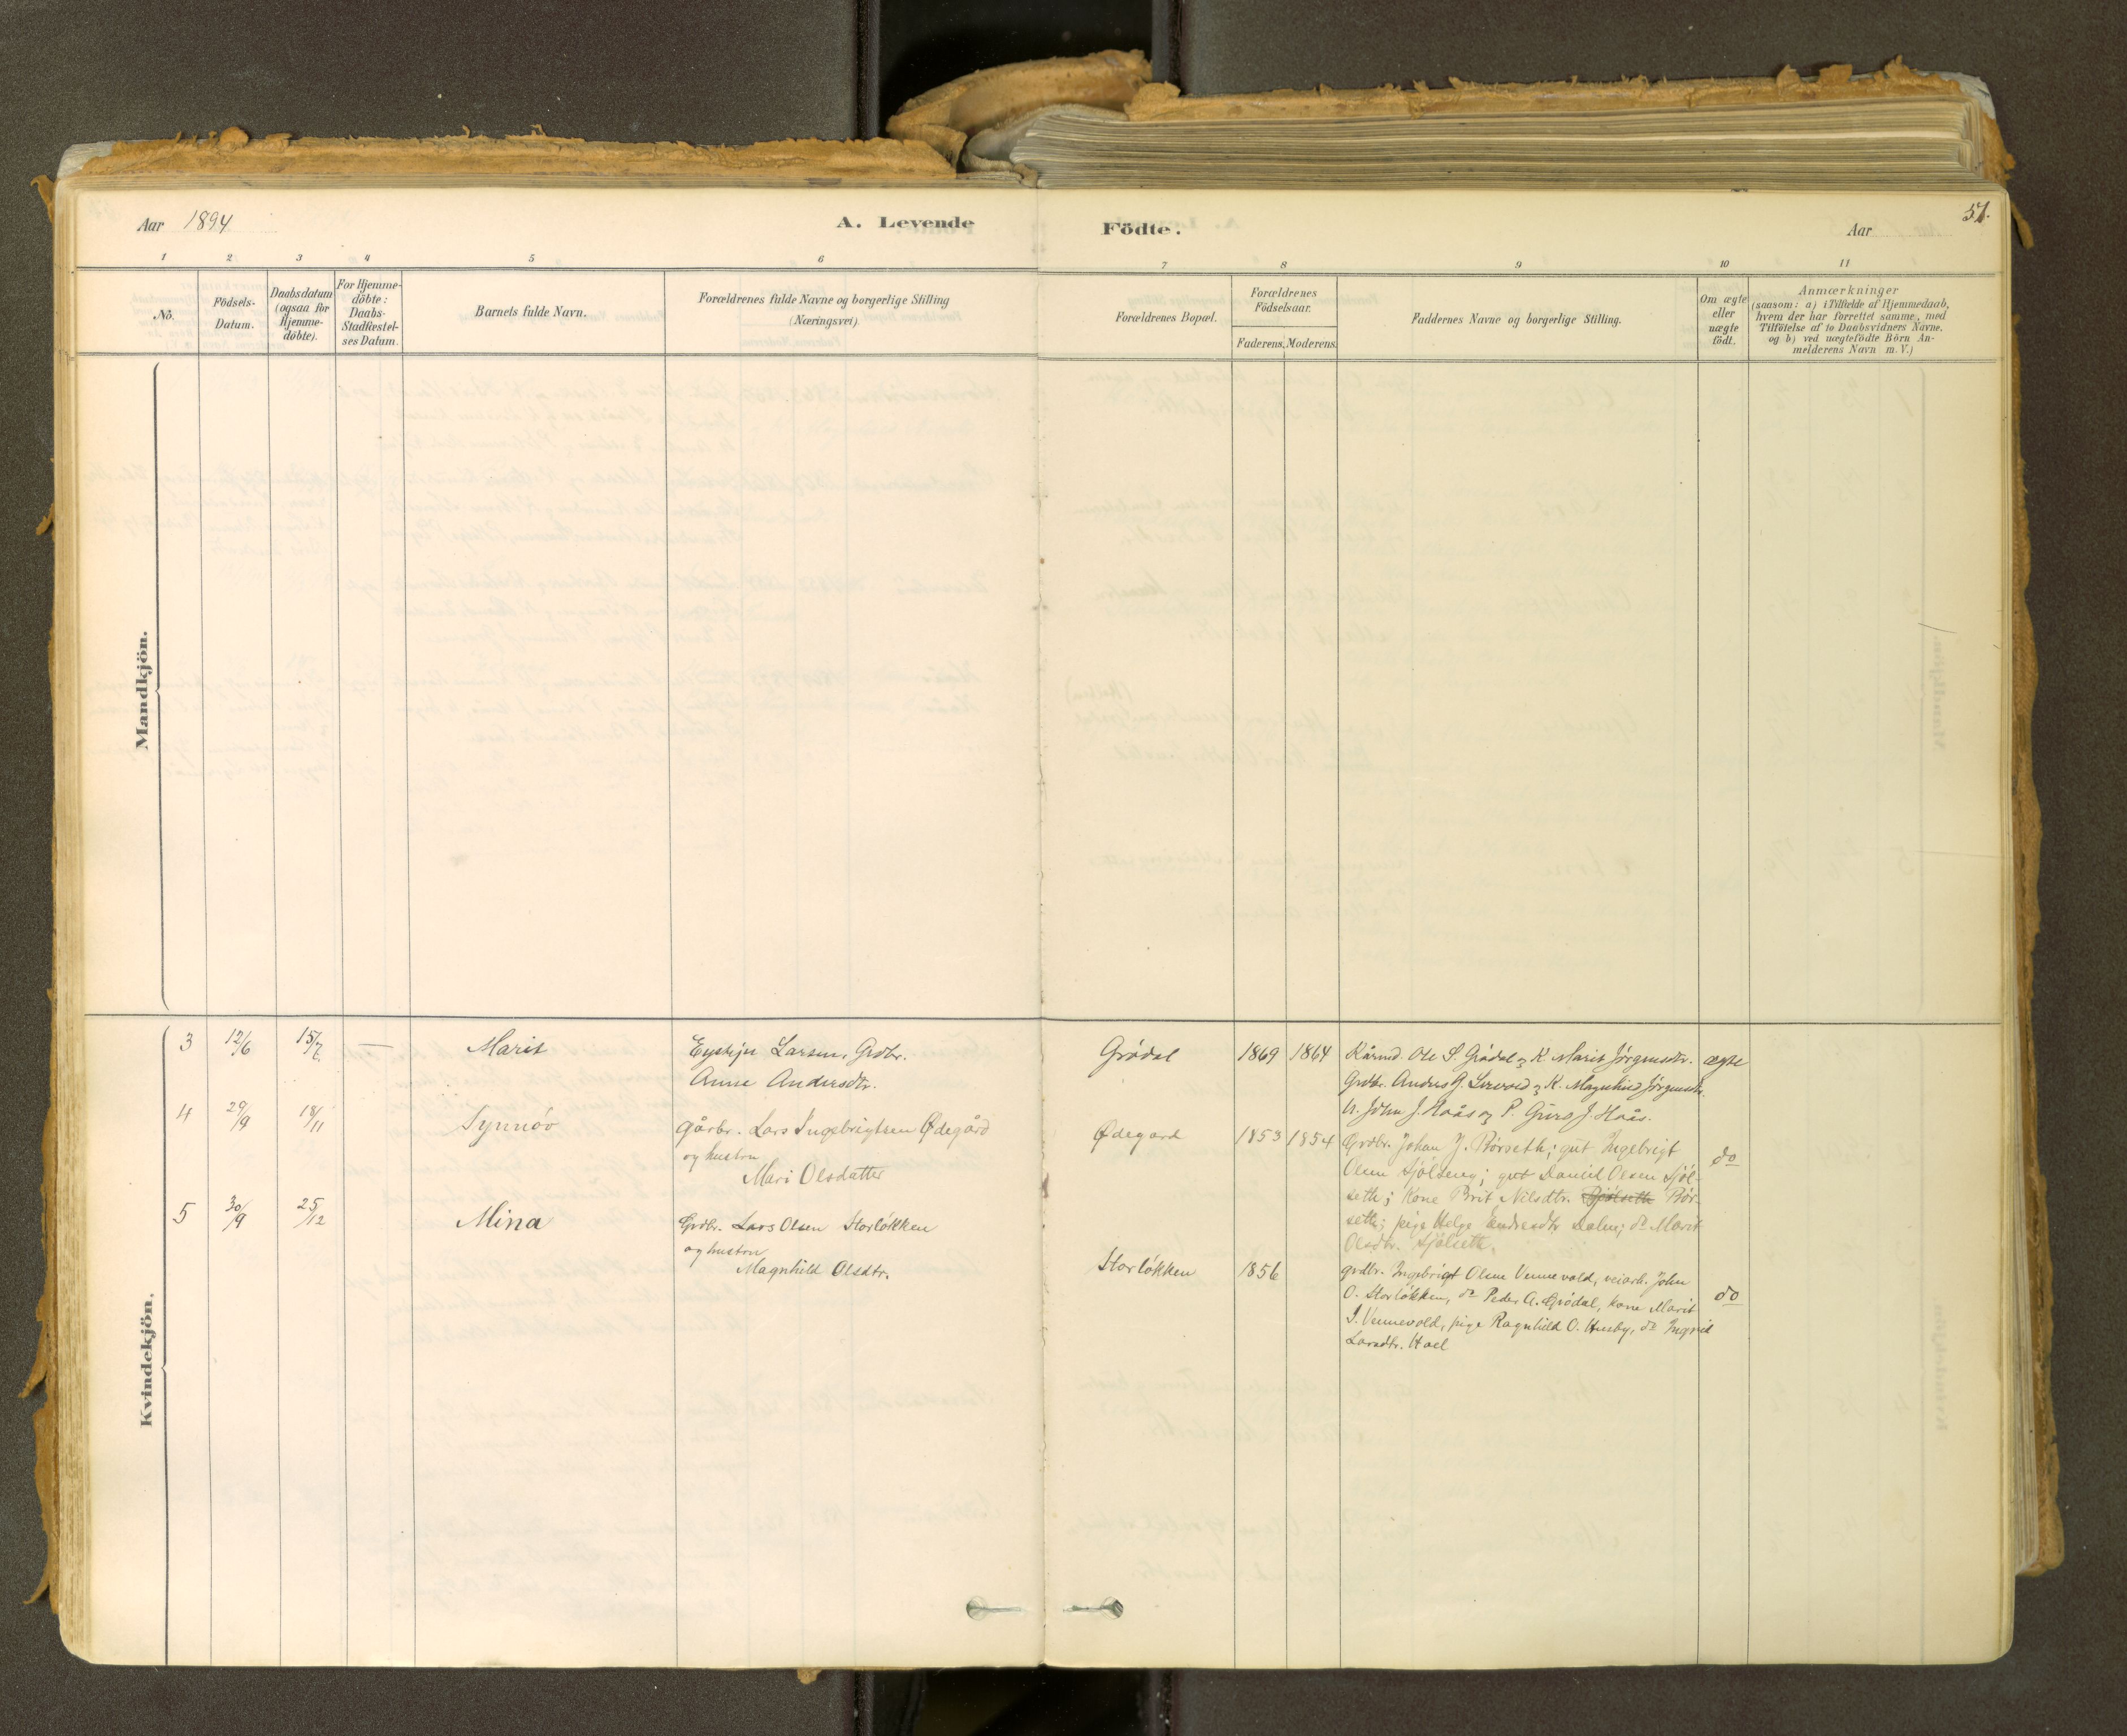 Aar 1894
A. Levende Födte.
Aar
51.
1 2 3 4 5 6 7 8 9 10 11
No.
Födsels-Datum.
Daabsdatum (ogsaa for Hjemme-döbte).
For Hjemme-döbte: Daabs-Stadfæstel-ses Datum.
Barnets fulde Navn.
Forældrenes fulde Navne og borgerlige Stilling
(Næringsvei).
Forældrenes Bopæl.
Forældrenes Födselsaar.
Faderens. Moderens.
Faddernes Navne og borgerlige Stilling.
Om ægte eller uægte födt.
Anmærkninger
(saasom: a) i Tilfælde af Hjemmedaab,
hvem der har forrettet samme, med
Tilföielse af to Daabsvidners Navne.
og b) ved uægtefödte Börn An-
melderens Navn m. V.)
Mandkjön.
Kvindekjön.
3 12/6 15/7 — Marit
Eystejn Larsen, Grdbr.
Anne Andersdtr.
Grödal 1869 1864
Kårmd. Ole S. Grödal og K. Marit Jörgensdtr.
Grdbr. Anders G. og K. Magnhild Jörgensdtr.
U. John J. Haås og P. Guro J. Haås.
ægte
4 29/9 18/11 Synnöv
gårbr. Lars Ingebrigtsen Ødegård
og hustru
Mari Olsdatter
Ødegard 1853 1854
Grdbr. Johan J. Börseth; gut Ingebrigt
Olsen Sjölseng; gut Daniel Olsen Sjöl-
seth; Kone Brit Nilsdtr. Sjölseth Bör-
seth; pige Helge Endresdtr. Dalen; do Marit
Olsdtr. Sjölseth.
do
5 30/9 25/12 Mina
Grdbr. Lars Olsen Storlökken
og hustru
Magnhild Olsdtr.
Storlökken 1856
grdbr. Ingebrigt Olsen Vennevold, veiarb. John
O. Storlökken, do Peder A. Grödal, kone Marit
I. Vennevold, pige Ragnhild O. Husby, do Ingrid
Larsdtr. Hoel
do